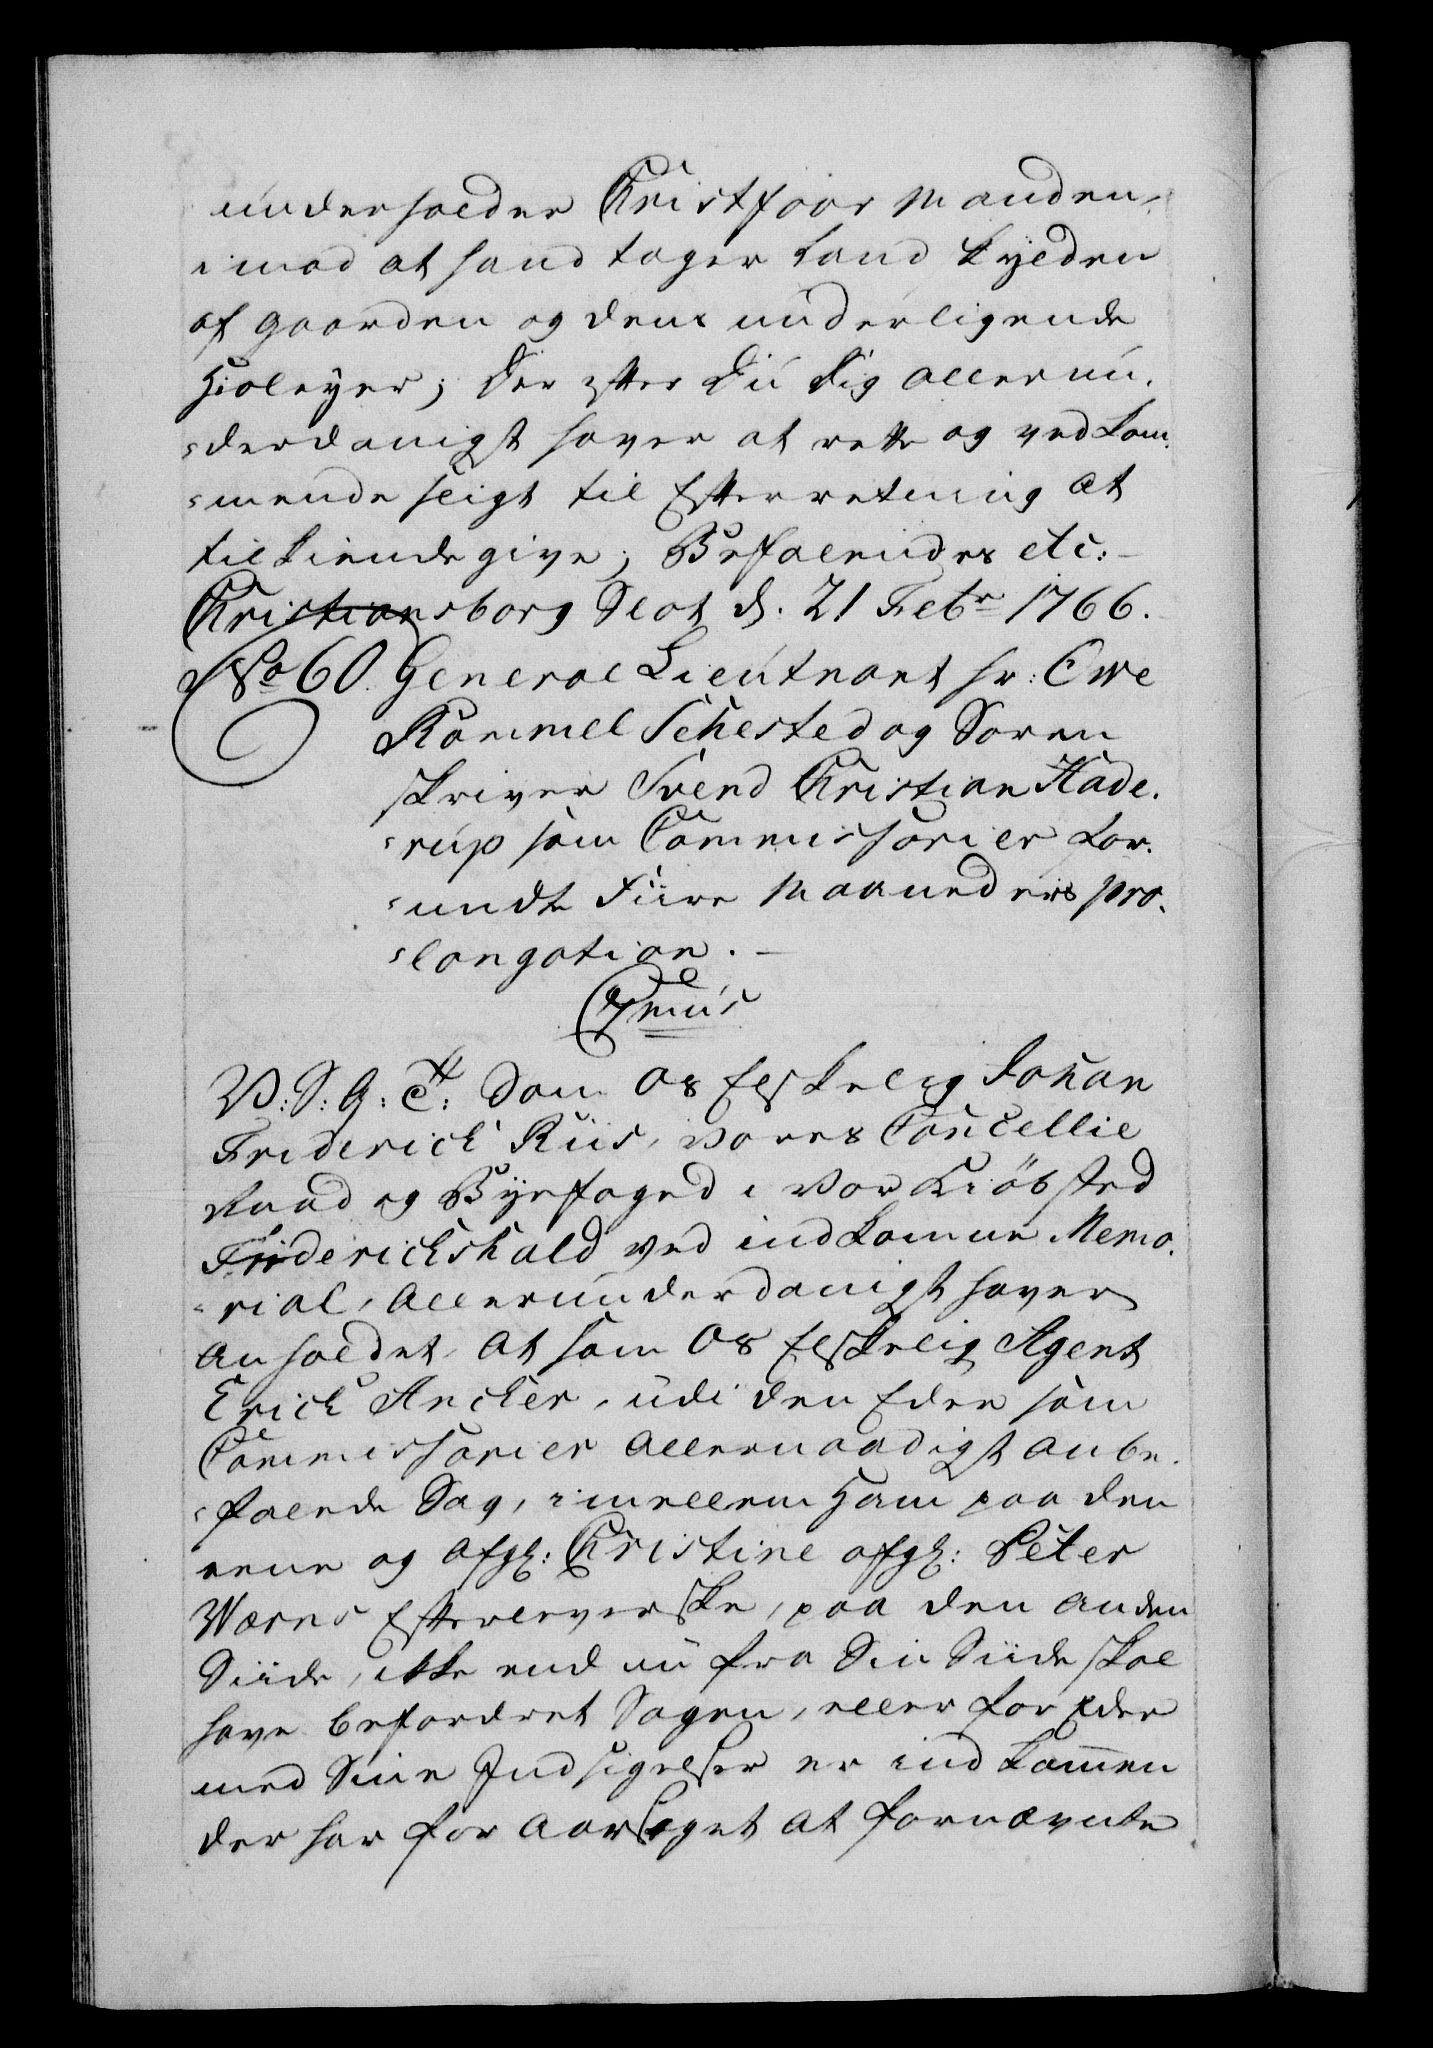 underholder Kristfoor Manden,
imod at hand tager Land Kylden
af gaarden og dens underligende
Hioleyer; Der efter Du dig allerun¬
¬derdanigst haver at rette og vedkom¬
¬mende sligt til Efterretning at
tilkiende give; Befalendes etc:
Kristiansborg Slot d. 21 Febr 1766.
No 60. General Lieutnant hr: Owe
Rammel Sehested og Soren
skriver Svend Kristian Hade¬
¬rup som Commissarier for¬
¬undt Fiire Maaneders pro¬
¬longation.
C7mus
V: S: G: T: Som Os Elskelig Johan
Friderich Riis, vores Cancellie
Raad og Byefoged i vor Kiöbsted
Friderichshald ved indkomne Memo¬
¬rial, Allerunderdanigst haver
anholdet, At som Os Elskelig Agent
Erich Ancher, udi den Eder som
Commissarier Allernaadigst anbe¬
¬falede Sag, imellem Ham paa den
eene og afgl: Kristine afgl: Peter
Wærns Efterleverske, paa den anden
Siide, ikke end nu fra Sin Siide skal
have befordret Sagen, eller for Eder
med Sine Indsigelser er indkommen
der har for aarsaget at fornævnte